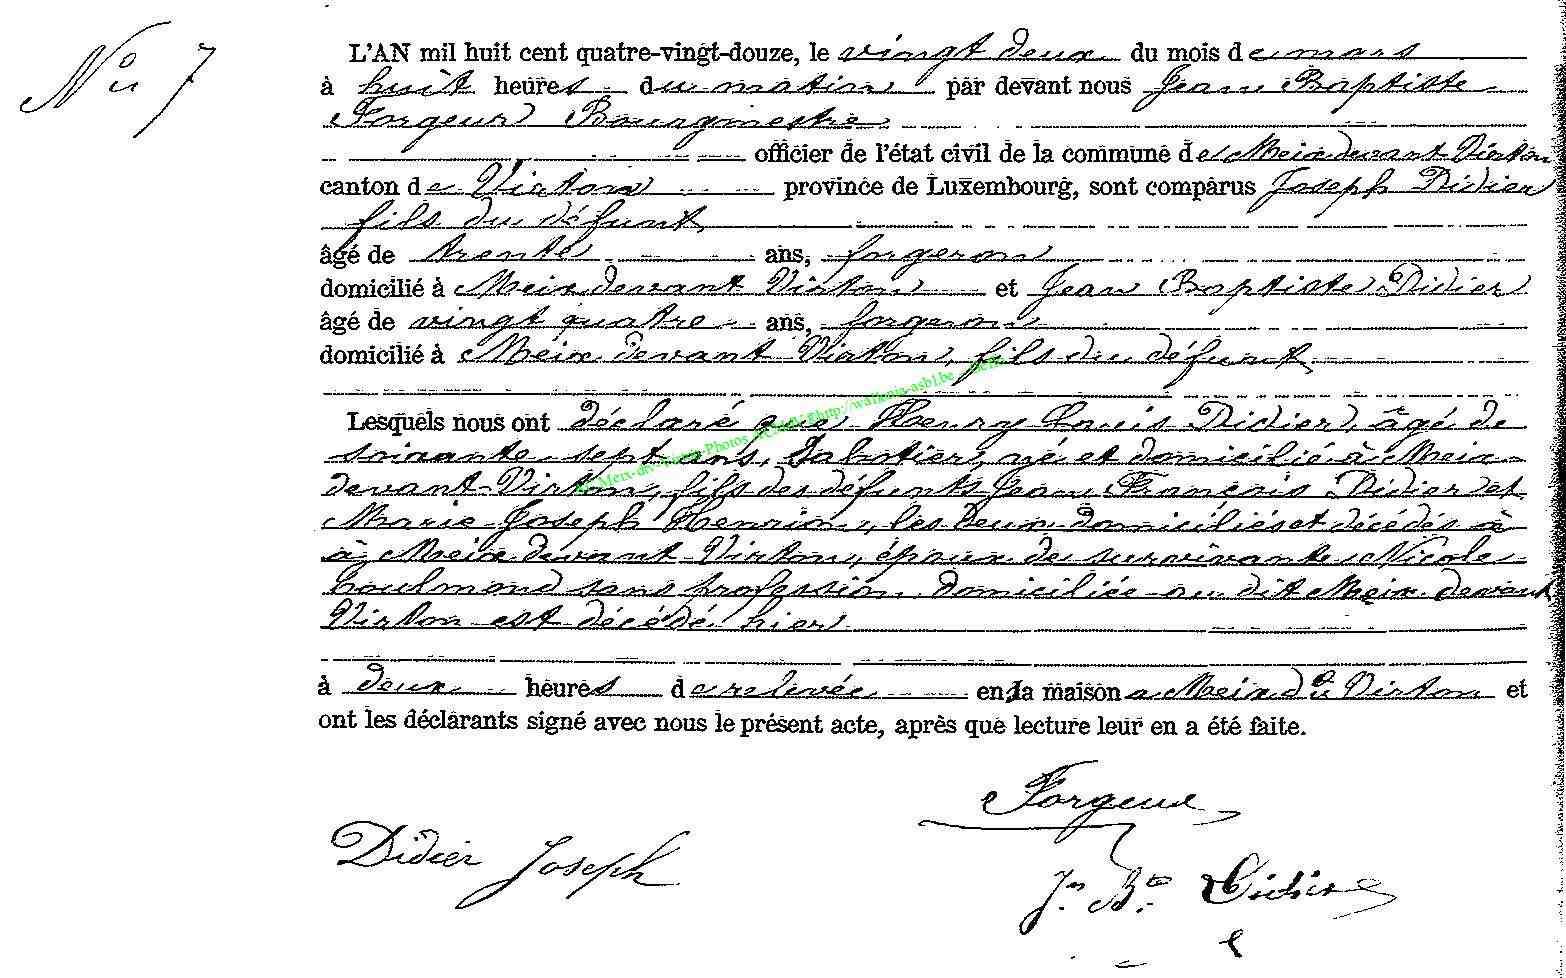 No 7
L'AN mil huit cent quatre-vingt-douze, le vingt deux du mois de mars
à huit heures du matin par devant nous Jean Baptiste
Forgeur Bourgmestre
officier de l'état civil de la commune de Meix devant Virton
canton de Virton province de Luxembourg, sont comparus Joseph Didier
fils du défunt
âgé de trente ans, forgeron
domicilié à Meix devant Virton et Jean Baptiste Didier
âgé de vingt quatre ans, forgeron
domicilié à Meix devant Virton, fils du défunt
Lesquels nous ont déclaré que Henry Louis Didier, âgé de
soixante sept ans, Sabotier, né et domicilié à Meix
devant Virton, fils des défunts Jean François Didier et
Marie Joseph Henrion, les deux domiciliés et décédés à
à Meix devant Virton, époux de survivante Nicole
Goulmond sans profession domiciliée au dit Meix devant
Virton est décédé hier
à deux heures de relevée en sa maison a Meix dt Virton et
ont les déclarants signé avec nous le présent acte, après que lecture leur en a été faite.
Forgeur
Didier Joseph
Jn Bte Didier